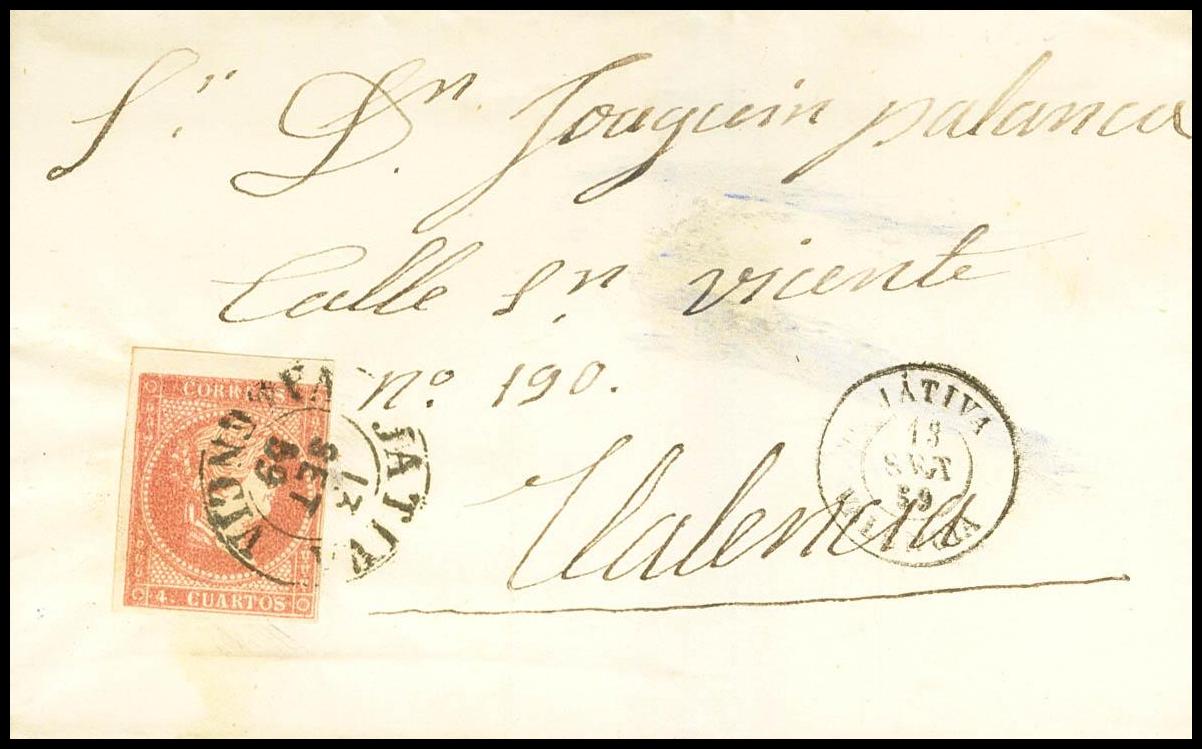 Sr. Dn. Joaquin palanca
Calle Sn. vicente
no. 190.
Valencia
CORREOS
4 CUARTOS
JATIVA
SET
59
VALENCIA
JÁTIVA
13
SET
59
VALENCIA